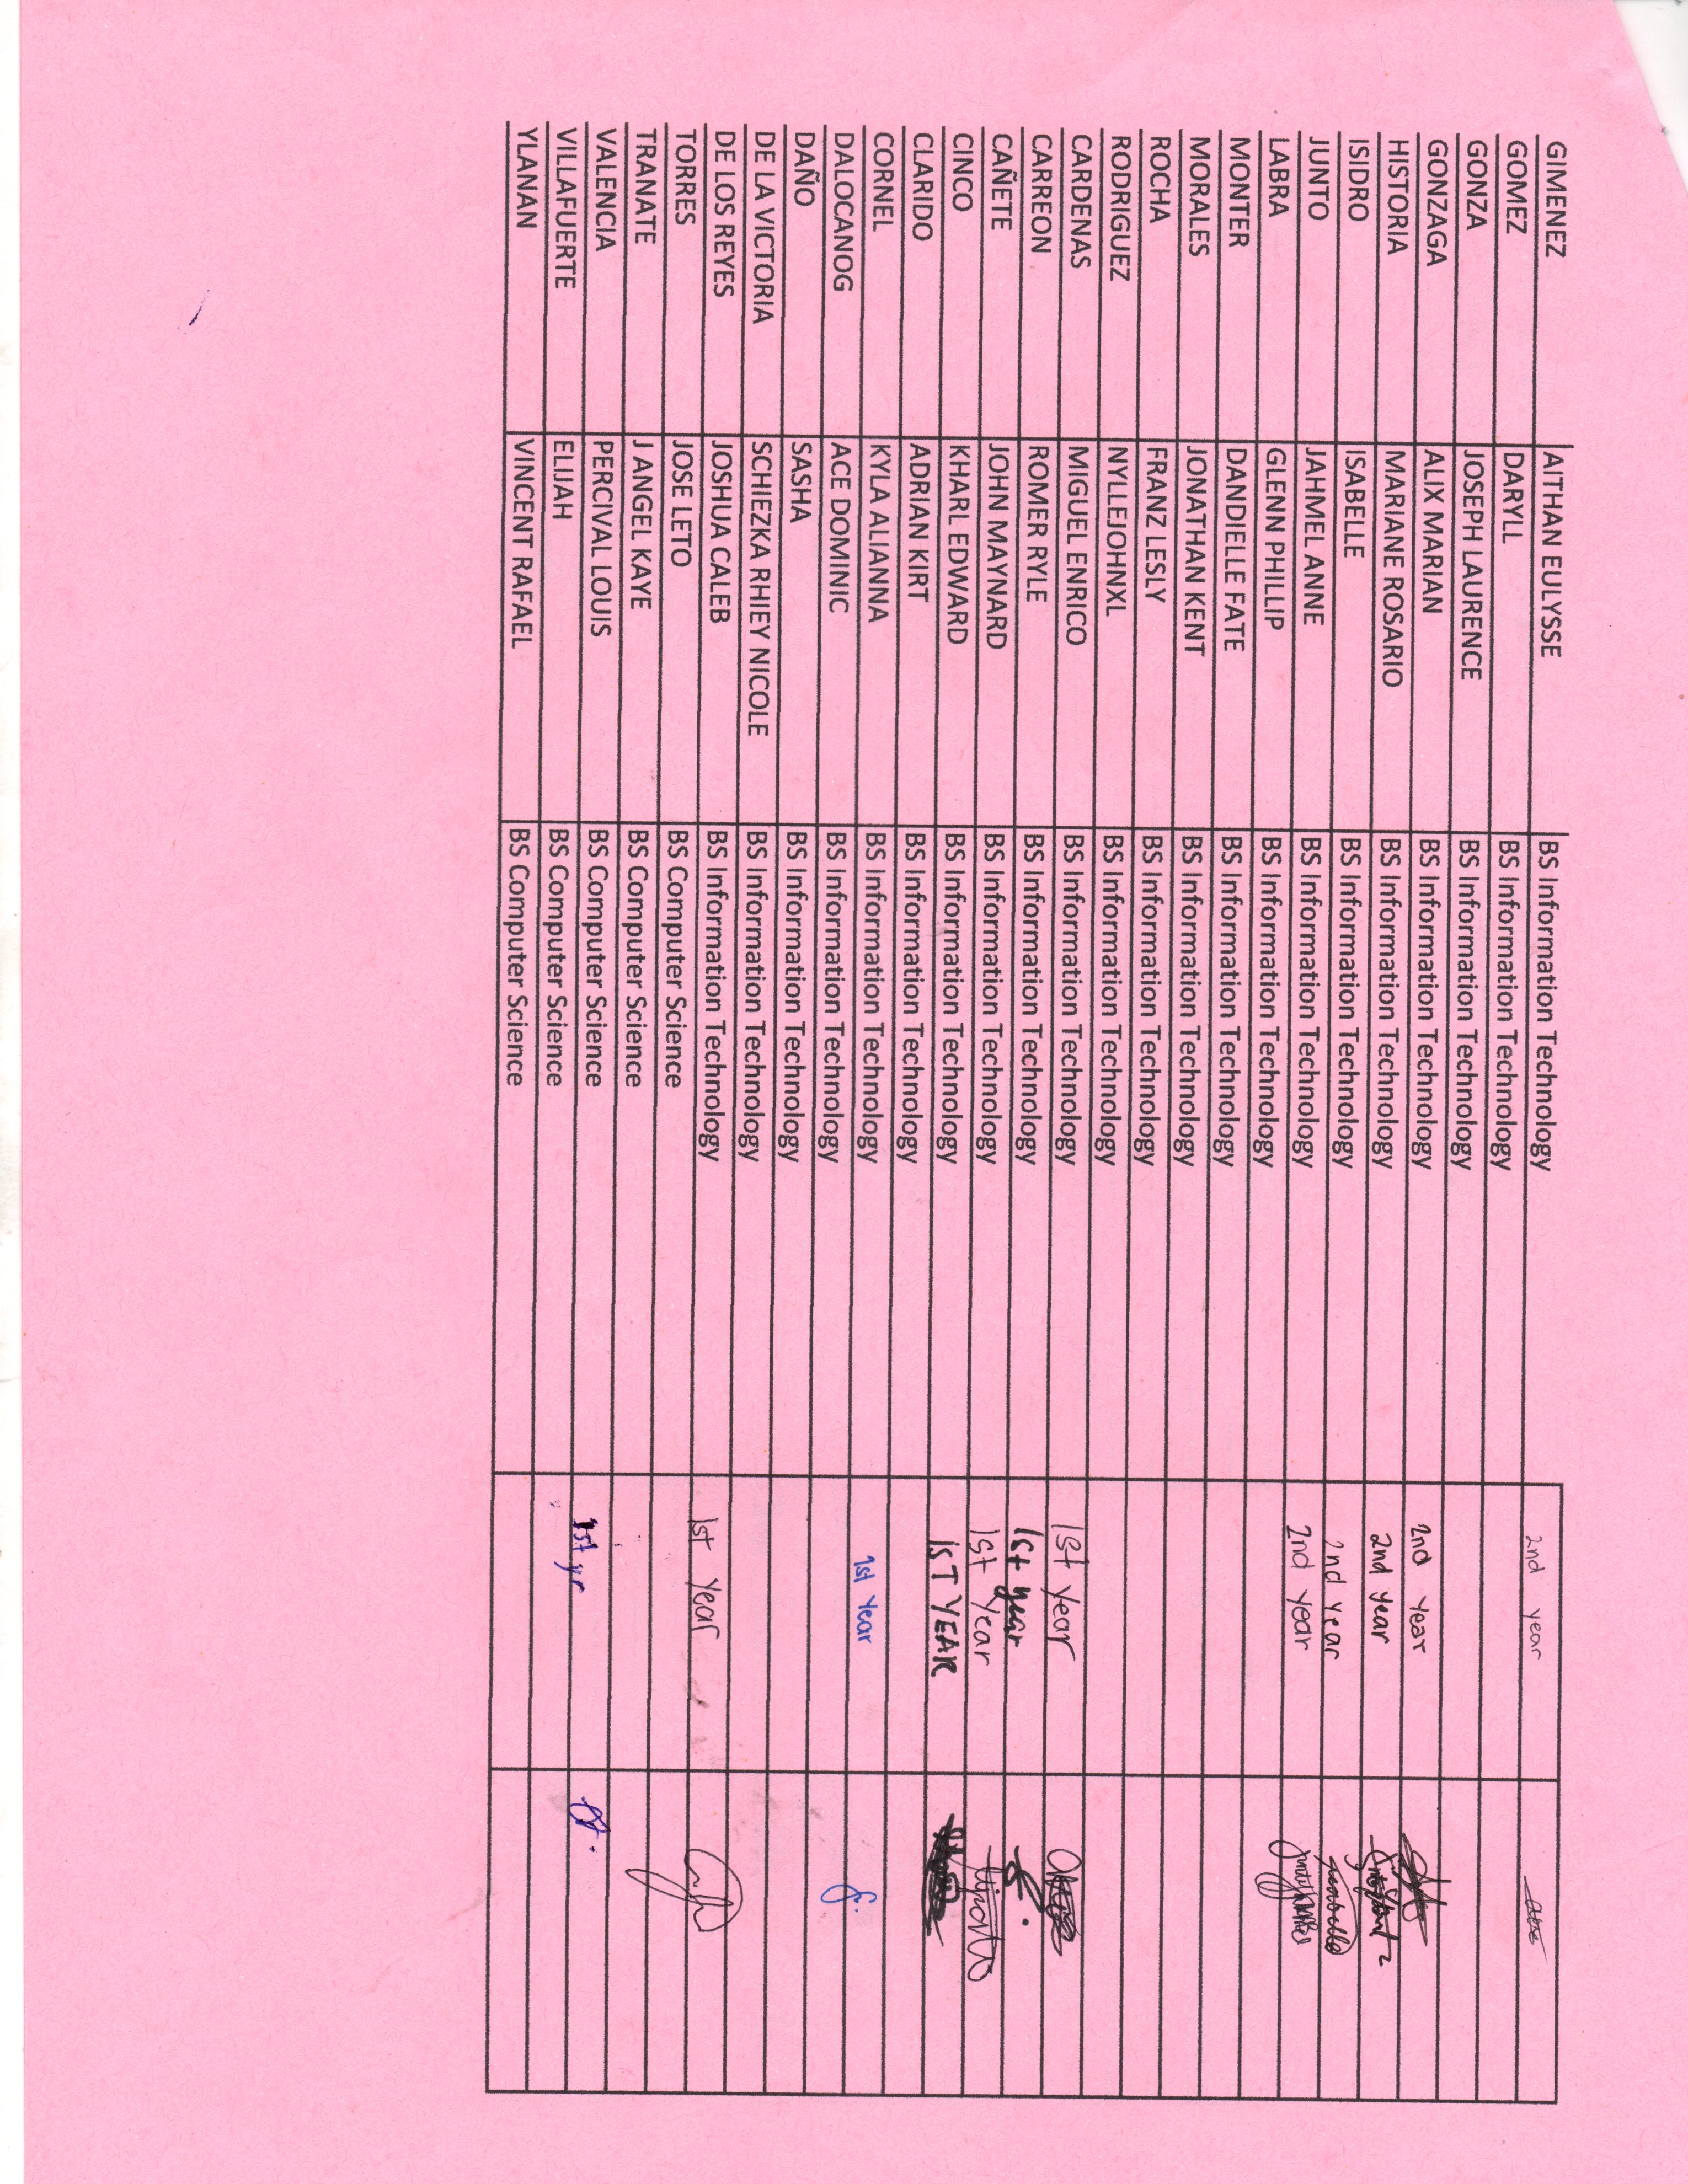 GIMENEZ AITHAN EULYSSE BS Information Technology 2nd year
GOMEZ DARYLL BS Information Technology
GONZA JOSEPH LAURENCE BS Information Technology
GONZAGA ALIX MARIAN BS Information Technology 2nd year
HISTORIA MARIANE ROSARIO BS Information Technology 2nd year
ISIDRO ISABELLE BS Information Technology 2nd year
JUNTO JAHMEL ANNE BS Information Technology 2nd year
LABRA GLENN PHILLIP BS Information Technology
MONTER DANDIELLE FATE BS Information Technology
MORALES JONATHAN KENT BS Information Technology
ROCHA FRANZ LESLY BS Information Technology
RODRIGUEZ NYLLEJOHNXL BS Information Technology
CARDENAS MIGUEL ENRICO BS Information Technology 1st year
CARREON ROMER RYLE BS Information Technology 1st year
CAÑETE JOHN MAYNARD BS Information Technology 1st Year
CINCO KHARL EDWARD BS Information Technology 1ST YEAR
CLARIDO ADRIAN KIRT BS Information Technology
CORNEL KYLA ALIANNA BS Information Technology 1st Year
DALOCANOG ACE DOMINIC BS Information Technology
DAÑO SASHA BS Information Technology
DE LA VICTORIA SCHIEZKA RHIEY NICOLE BS Information Technology
DE LOS REYES JOSHUA CALEB BS Information Technology 1st Year
TORRES JOSE LETO BS Computer Science
TRANATE J ANGEL KAYE BS Computer Science
VALENCIA PERCIVAL LOUIS BS Computer Science 1st yr
VILLAFUERTE ELIJAH BS Computer Science
YLANAN VINCENT RAFAEL BS Computer Science